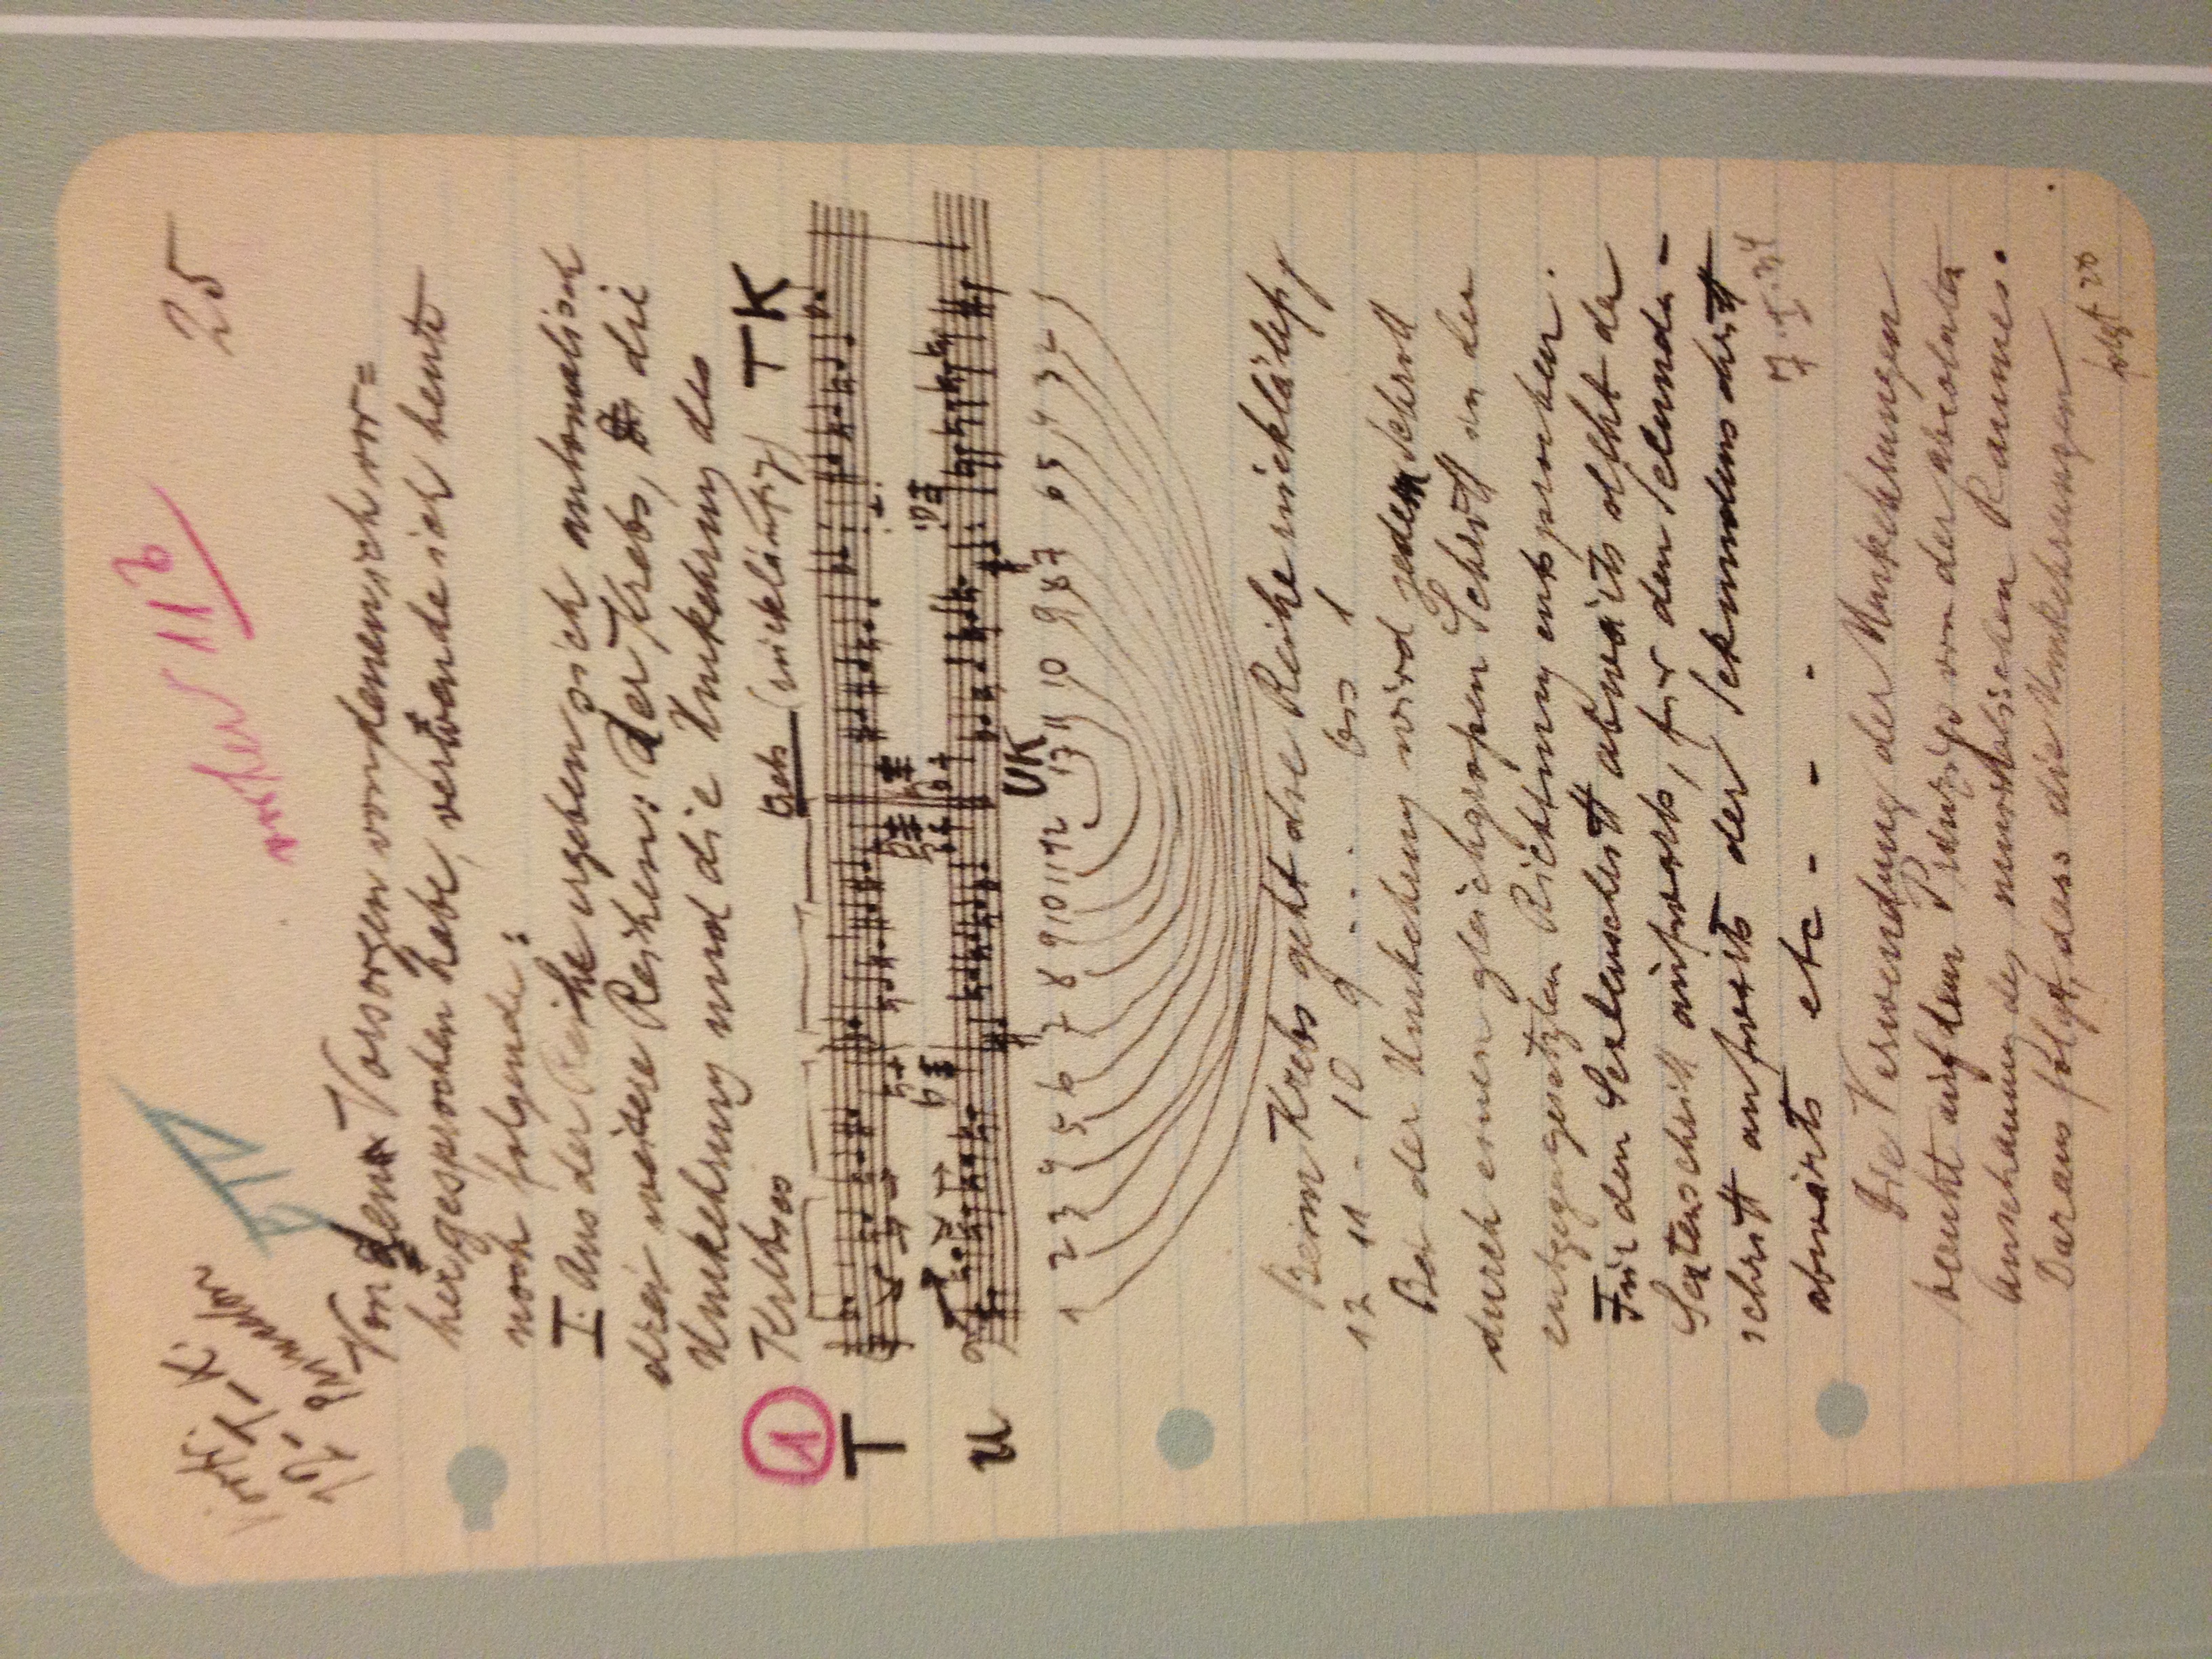 25
vorher 11b
Von den Vorsorgen von denen ich vor=
hergesprochen habe, verwende ich heute
noch folgende:
I. Aus der Reihe ergeben sich automatisch
drei weitere Reihen: der Krebs, die
Umkehrung und die Umkehrung des
Krebses
Krebs (rückläufig) TK
1
T
U
UK
1 2 3 4 5 6 7 8 9 10 11 12 12 11 10 9 8 7 6 5 4 3 2 1
Beim Krebs geht die Reihe rückläufig
12 11 - 10 9 . . . bis 1
Bei der Umkehrung wird jedem Schritt
durch einen gleichgrossen Schritt in der
entgegengesetzten Richtung entsprochen.
Für den Sextenschritt abwärts steht der
Sextenschritt aufwärts, für den Sekunden-
schritt aufwärts der Sekundenschritt
abwärts etc - - -
7.I.34
Die Verwendung der Umkehrungen
beruht auf dem Prinzip von der absoluten
Anschauung des musikalischen Raumes.
Daraus folgt, dass die Umkehrungen
folgt 26